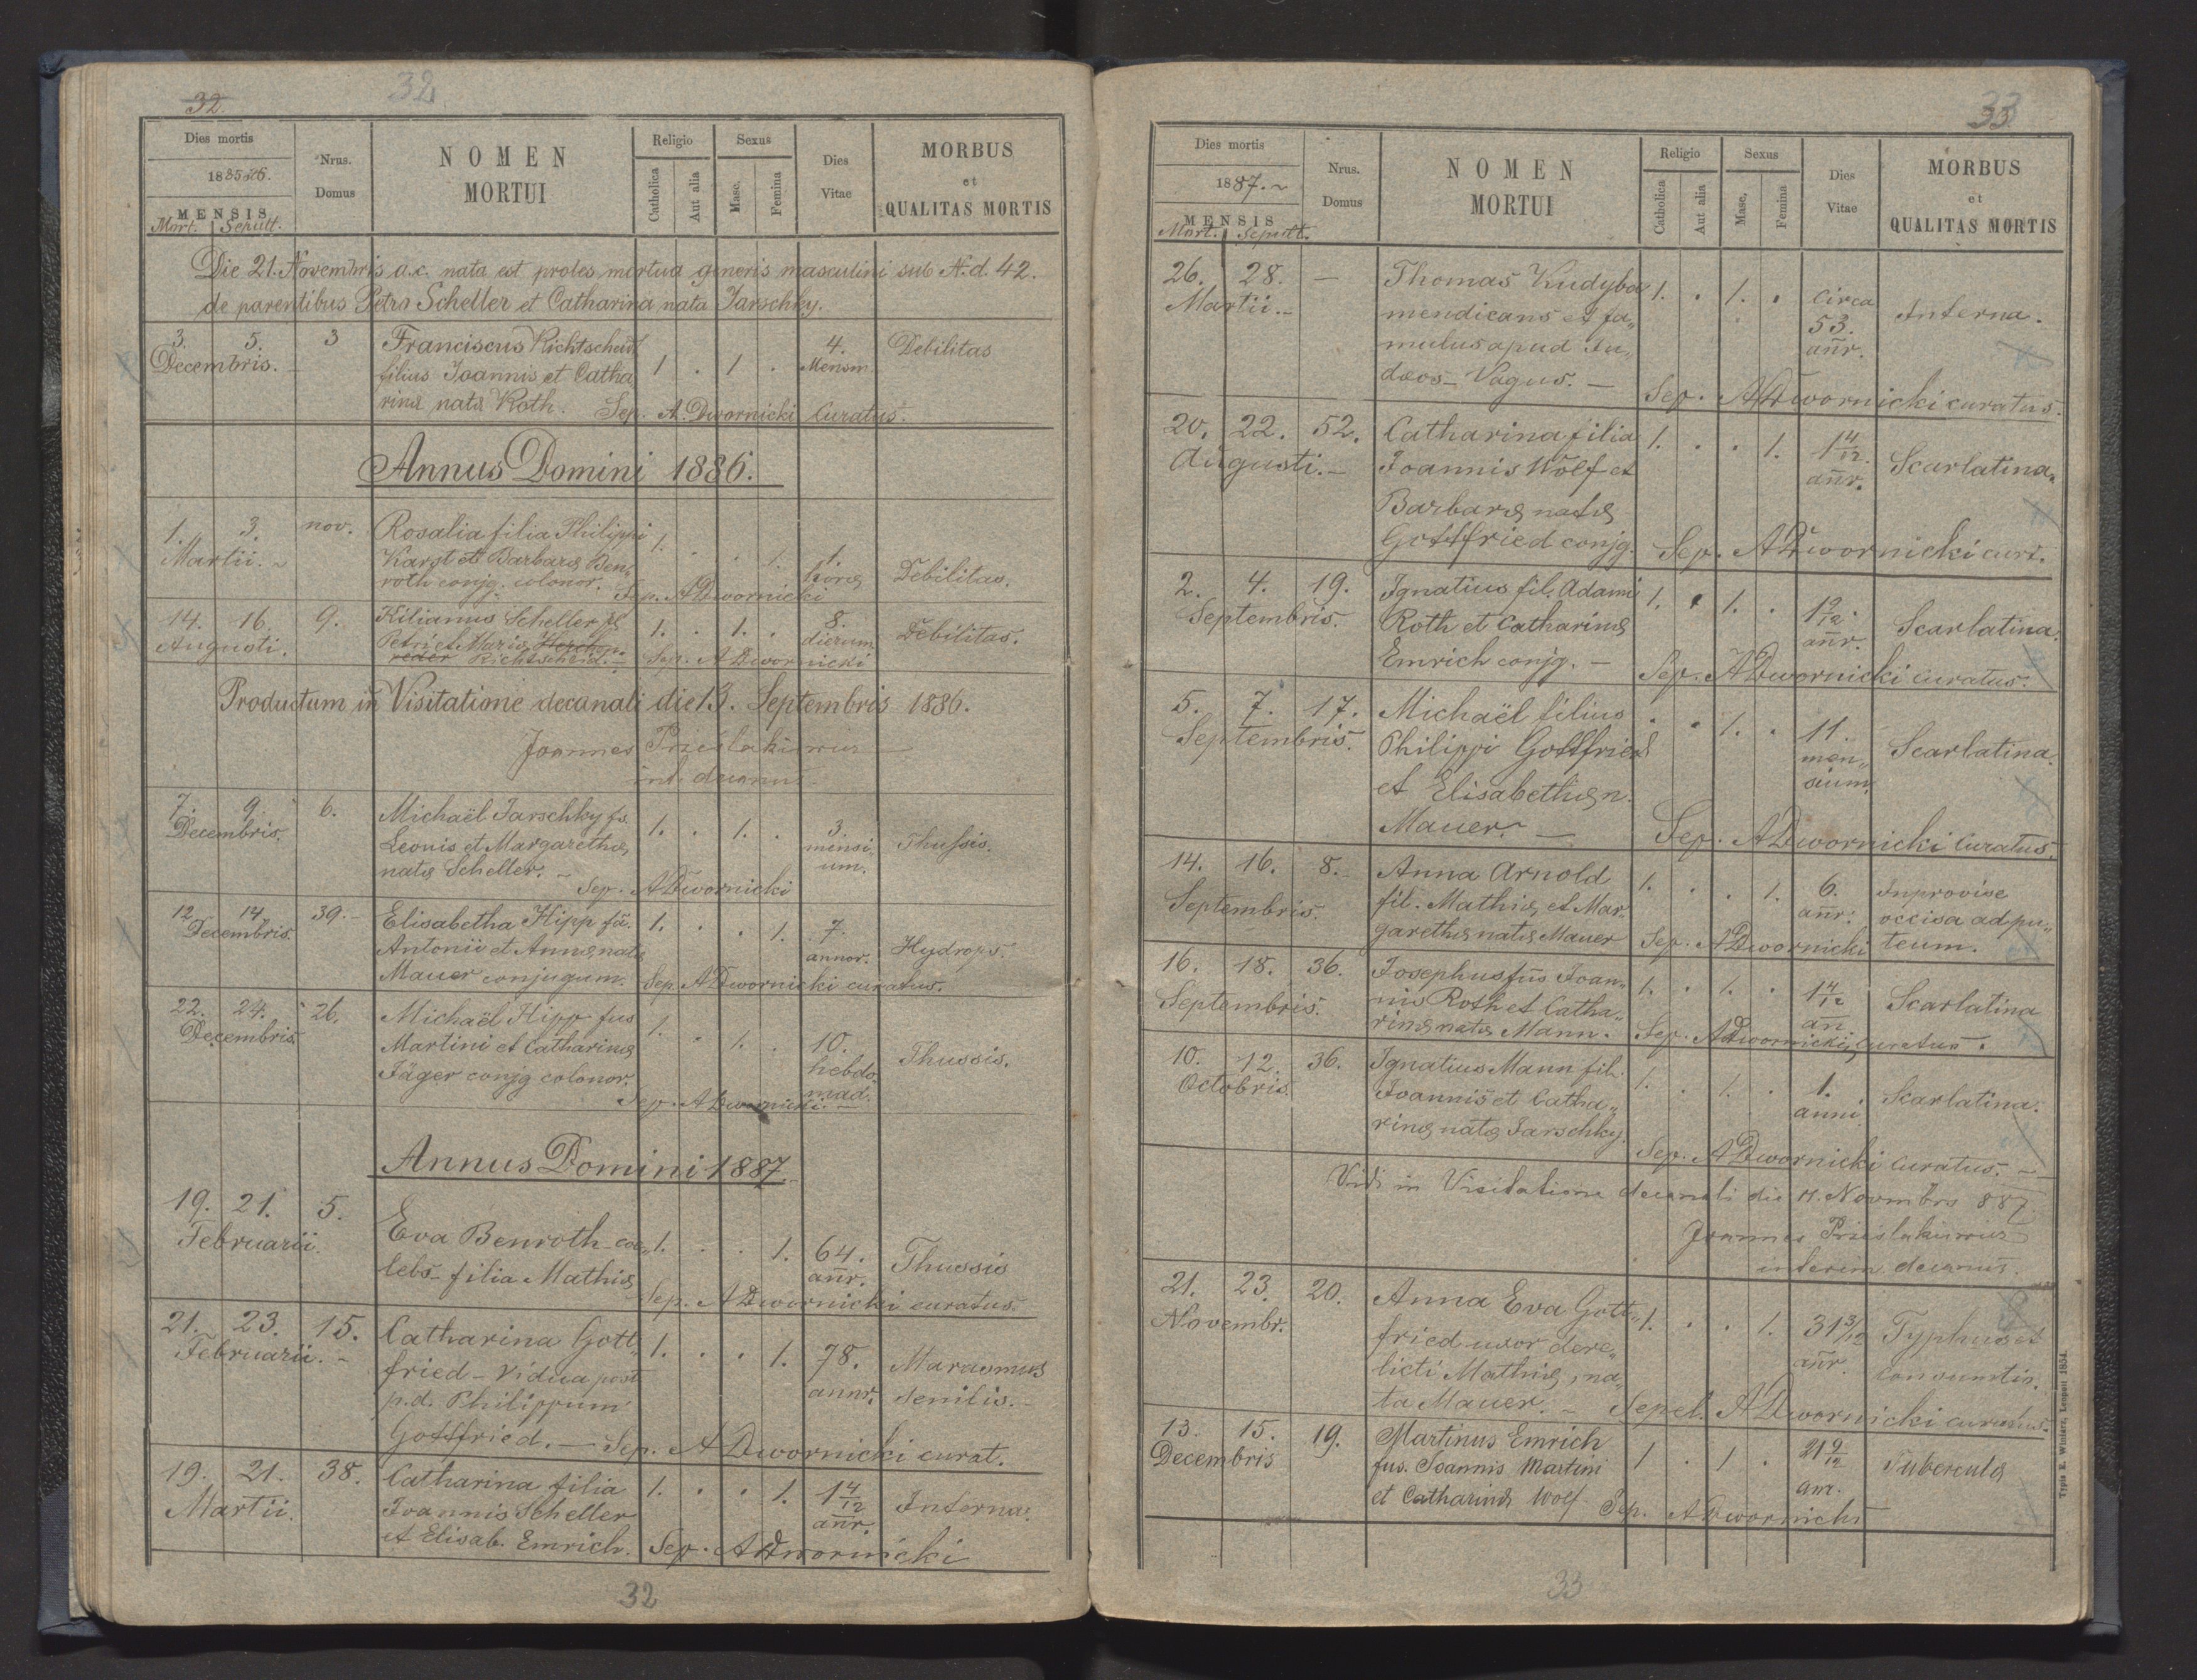 32.
32
Dies mortis
1885 86.
MENSIS
Mort. Sepult.
Nrus.
Domus
NOMEN
MORTUI
Religio
Catholica
Aut alia
Sexus
Masc.
Femina
Dies
Vitae
MORBUS
et
QUALITAS MORTIS
Die 21. Novembris a.c. nata est proles mortua generis masculini sub N.d. 42.
de parentibus Petro Scheller et Catharina nata Jarschky.
3. 5. 3 Franciscus Richtscheid 4. Debilitas
Decembris. filius Joannis et Catha 1 . 1 . Mensm
rinæ natæ Roth. Sep. A. Dwornicki Curatus.
Annus Domini 1886.
1. 3. nov. Rosalia filia Philippi 1. . . 1. 1.
Martii. Kargt et Barbaræ Ben, horæ Debilitas.
roth conjg. colonor. Sep. ADwornicki
14. 16. 9. Kilianus Scheller fs 1. . 1. . 8.
Augusti. Petri et Mariæ dierum Debilitas.
Richtscheid. Sep. ADwornicki
Productum in Visitatione decanali die 13. Septembris 1886.
Joannes Prieslakiewicz
int. decanus
7. 9. 6. Michaël Jarschky fs. 1. . 1. . 3.
Decembris. Leonis et Margarethæ, mensi, Thussis.
natæ Scheller. um.
Sep. ADwornicki
12 14 39. Elisabetha Hipp fa. 1. . . 1. 7.
Decembris. Antonii et Annæ natæ annor. Hydrops.
Mauer conjugum. Sep. ADwornicki curatus.
22. 24. 26. Michaël Hipp fus 1. . 1. .
Decembris. Martini et Catharinæ 10.
Jäger conjg colonor. hebdo, Thussis.
mad.
Sep. ADwornicki.
Annus Domini 1887.
19. 21. 5. Eva Benroth coe, 1. . . 1. 64. Thussis
Februarii. lebs filia Mathiæ anr.
Sep. ADwornicki curatus.
21. 23. 15. Catharina Gott, 1. . . 1. 78. Marasmus
Februarii. fried - Vidua post annr. senilis.
p.d. Philippum
Gottfried. Sep. ADwornicki curat.
19. 21. 38. Catharina filia 1. . . 1. 1 4/12 Interna.
Martii. Joannis Scheller anr.
et Elisab. Emrich. Sep. ADwornicki
32
33
33.
Dies mortis
1887.
MENSIS
Mort. Sepult.
Nrus.
Domus
NOMEN
MORTUI
Religio
Catholica
Aut alia
Sexus
Masc.
Femina
Dies
Vitae
MORBUS
et
QUALITAS MORTIS
26. 28. — Thomas Kudyba 1. . 1. . circa Interna.
Martii. mendicans et fa, 53.
mulus apud Ju, anr.
dæos - Vagus. —
Sep. ADwornicki curatus.
20. 22. 52. Catharina filia 1. . . 1. 1 4/12. Scarlatina.
Augusti. Joannis Wolf et anr.
Barbaræ natæ
Gottfried conjg. Sep. ADwornicki curt.
2. 4. 19. Ignatius fil. Adami 1. . 1. . 1 9/12. Scarlatina.
Septembris. Roth et Catharinæ anr.
Emrich conjg. — Sep. ADwornicki curatus.
5. 7. 17. Michaël filius . . 1. . 11. Scarlatina.
Septembris. Philippi Gottfried men,
et Elisabethæ n. sium.
Mauer. — Sep. ADwornicki Curatus.
14. 16. 8. Anna Arnold 1. . . 1. 6. Inprovise
Septembris. fil. Mathiæ et Mar, anr. occisa ad pu,
garethæ natæ Mauer Sep. ADwornicki teum.
16. 18. 36. Josephus fus Joan, 1. . 1. . 1 4/12 Scarlatina
Septembris. nis Roth et Catha, an.
rinæ natæ Mann. Sep. ADwornicki, curatus.
10. 12. 36. Ignatius Mann fil. 1. . 1. . 1. Scarlatina.
Octobris. Joannis et Catha, anni
rinæ natæ Jarschky.
Sep. ADwornicki curatus.
Vidi in Visitatione decanali die 11. Novembris 887
Joannes Prieslakiewicz
interim decanus.
21. 23. 20. Anna Eva Gott, 1. . . 1. 31 3/12 Typhus et
Novembr. fried uxor dere, anr.
licti Mathiæ, na,
ta Mauer. Sepel. ADwornicki curatus.
13. 15. 19. Martinus Emrich 1 . 1 . 21 9/12 Tuberculæ
Decembris fus. Joannis Martini anr.
et Catharinæ Wolf Sep. ADwornicki
Typis E. Winiarz, Leopoli 1854.
33